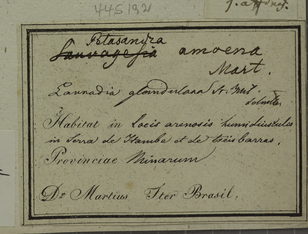 445192
Sauvagesia amoena
Mart.
Lavradia glandulosa St. Hil.
Habitat in locis arenosis humidiusculis
in Serra de Itambe et de
Provinciae Minarum
Dr Martius Iter Brasil.